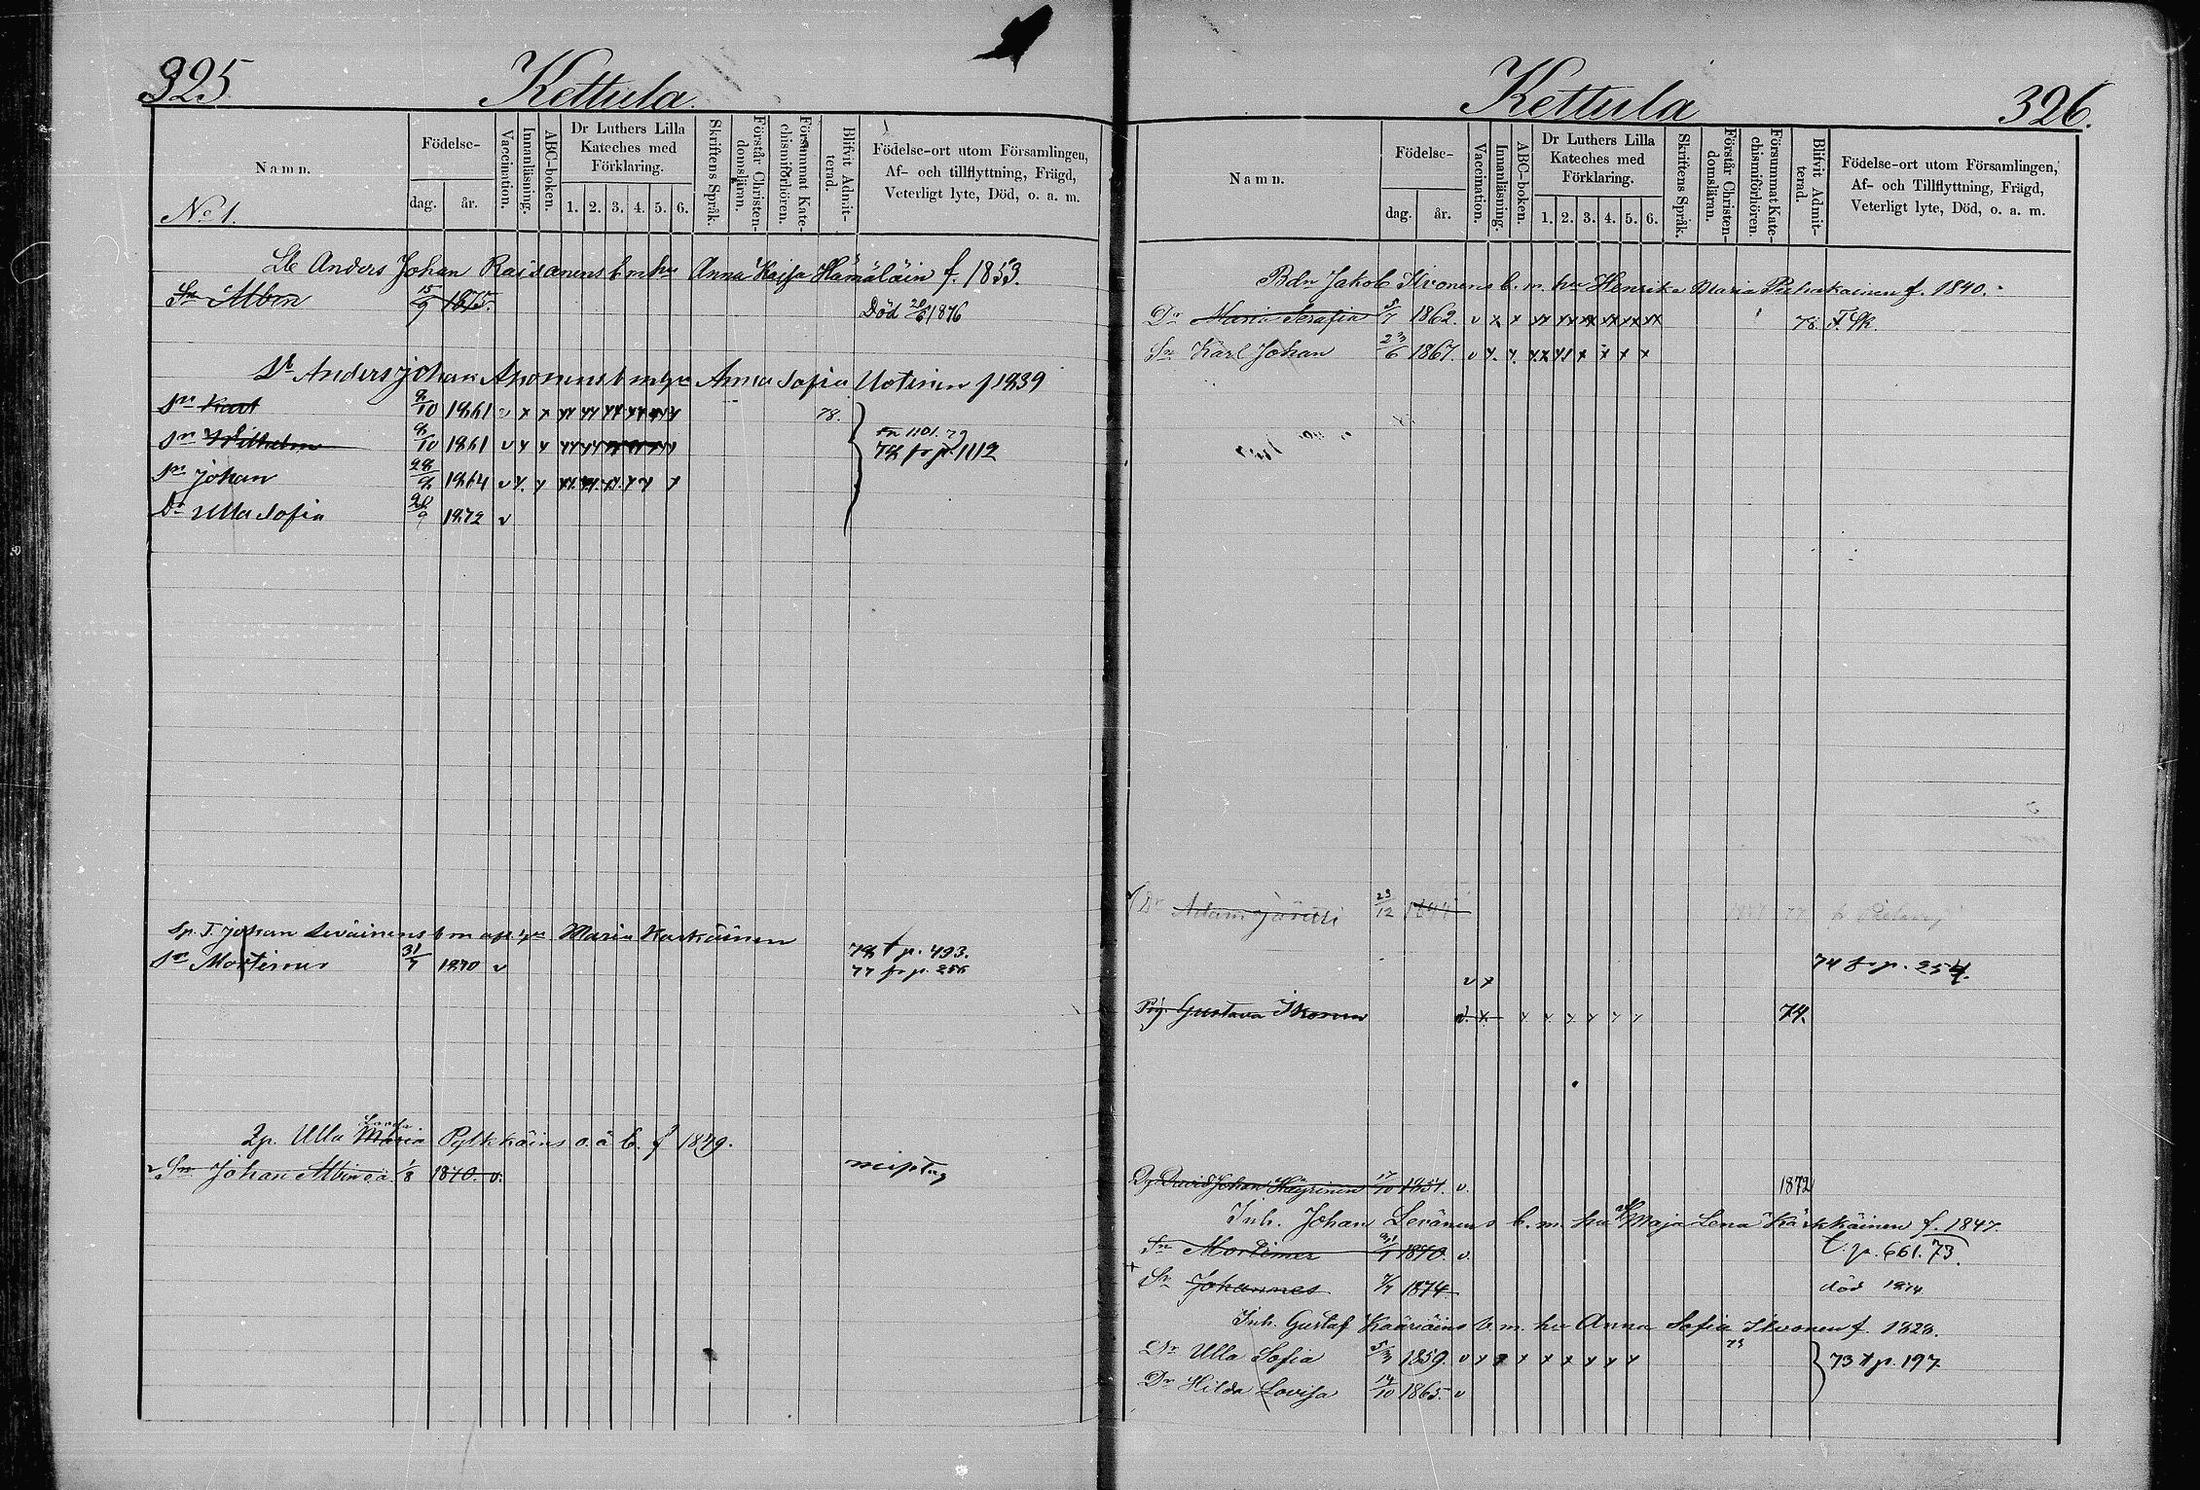 325 Kettula
Namn.
No 1.
Födelse-
dag. år.
Vaccination.
Innanläsning.
ABC-boken.
Dr Luthers Lilla
Kateches med
Förklaring.
1. 2. 3. 4. 5. 6.
Skriftens Språk.
Förstår Christen-
domsläran.
Försummat Kate-
chismiförhören.
Blifvit Admit-
terad.
Födelse-ort utom Församlingen,
Af- och tillflyttning, Frägd,
Veterligt lyte, Död, o. a. m.
Anders Johan Räisänens b m hu Anna Kaisa Hämäläin f. 1853.
Sn Albin 15/9 1875. Död 1876
Anders Johan b m hu Anna Sofia f 1839
Sn Karl 8/10 1861 v x x xx xx xx xx xx x 78.
Sn Wilhelm 8/10 1861 v x x 1101. 79
78 fr p. 1112
Sn Johan 28/8 1864 v x. x
Dr Ulla Sofia 20/9 1872 v
Johan Leväinens b m Maria Karkäinen
Sn Mortimer 31/7 1870 v
78 t p. 493.
77 fr p. 256
Ulla Maria Pylkkäins o. ä b. f 1849.
Sn Johan Albin o. ä 1/8 1870. v.
Kettula 326.
Namn.
Födelse-
dag. år.
Vaccination.
Innanläsning.
ABC-boken.
Dr Luthers Lilla
Kateches med
Förklaring.
1. 2. 3. 4. 5. 6.
Skriftens Språk.
Förstår Christen-
domsläran.
Försummat Kate-
chismiförhören.
Blifvit Admit-
terad.
Födelse-ort utom Församlingen,
Af- och Tillflyttning, Frägd,
Veterligt lyte, Död, o. a. m.
Bdn Jakob Ikonens b. m. hu Henrika Maria f. 1840.
Dr Maria Serafia 1862. v x x xx xx xx xx xx xx 78.
Sn Karl Johan 23/6 1867. v x. x. xx xx x x x x
Adam 23/12 77
74 fr p. 254.
v x
Pig. Gustava Ikonen v. x. x x x x x x 74.
David Johan Häyrinen 17/10 1851. v. 1872
Inh. Johan Levänens b. m. hu Maja Lena Kärkkäinen f. 1847.
Sn Mortimer 31/7 1870. v. t. p. 661. 73.
Sn Johannes 7/7 1874 död 1874
Inh. Gustaf Kääriäins b. m. hu Anna Sofia Ikonen f. 1828.
Dr Ulla Sofia 5/3 1859. v x x x x x x x x 73 73 t p. 197.
Dr Hilda Lovisa 14/10 1865. v